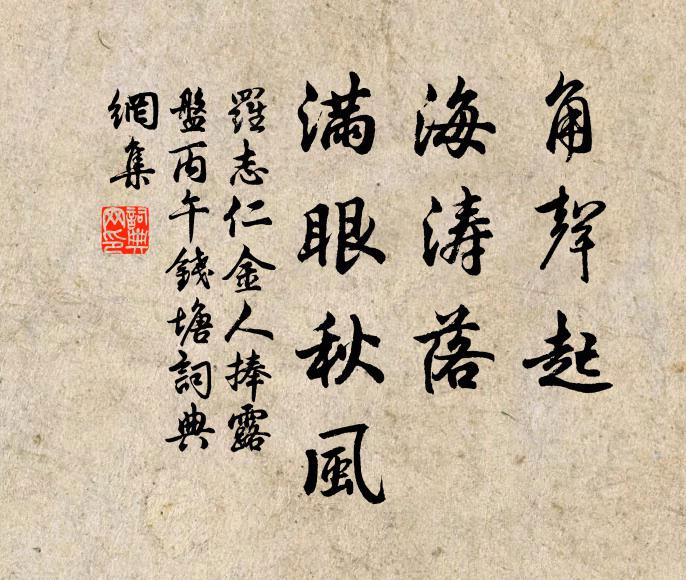 角聲起
海涛落
满眼秋風
羅志仁金人捧露
盤丙午錢塘詞典
網集
詞典
网印